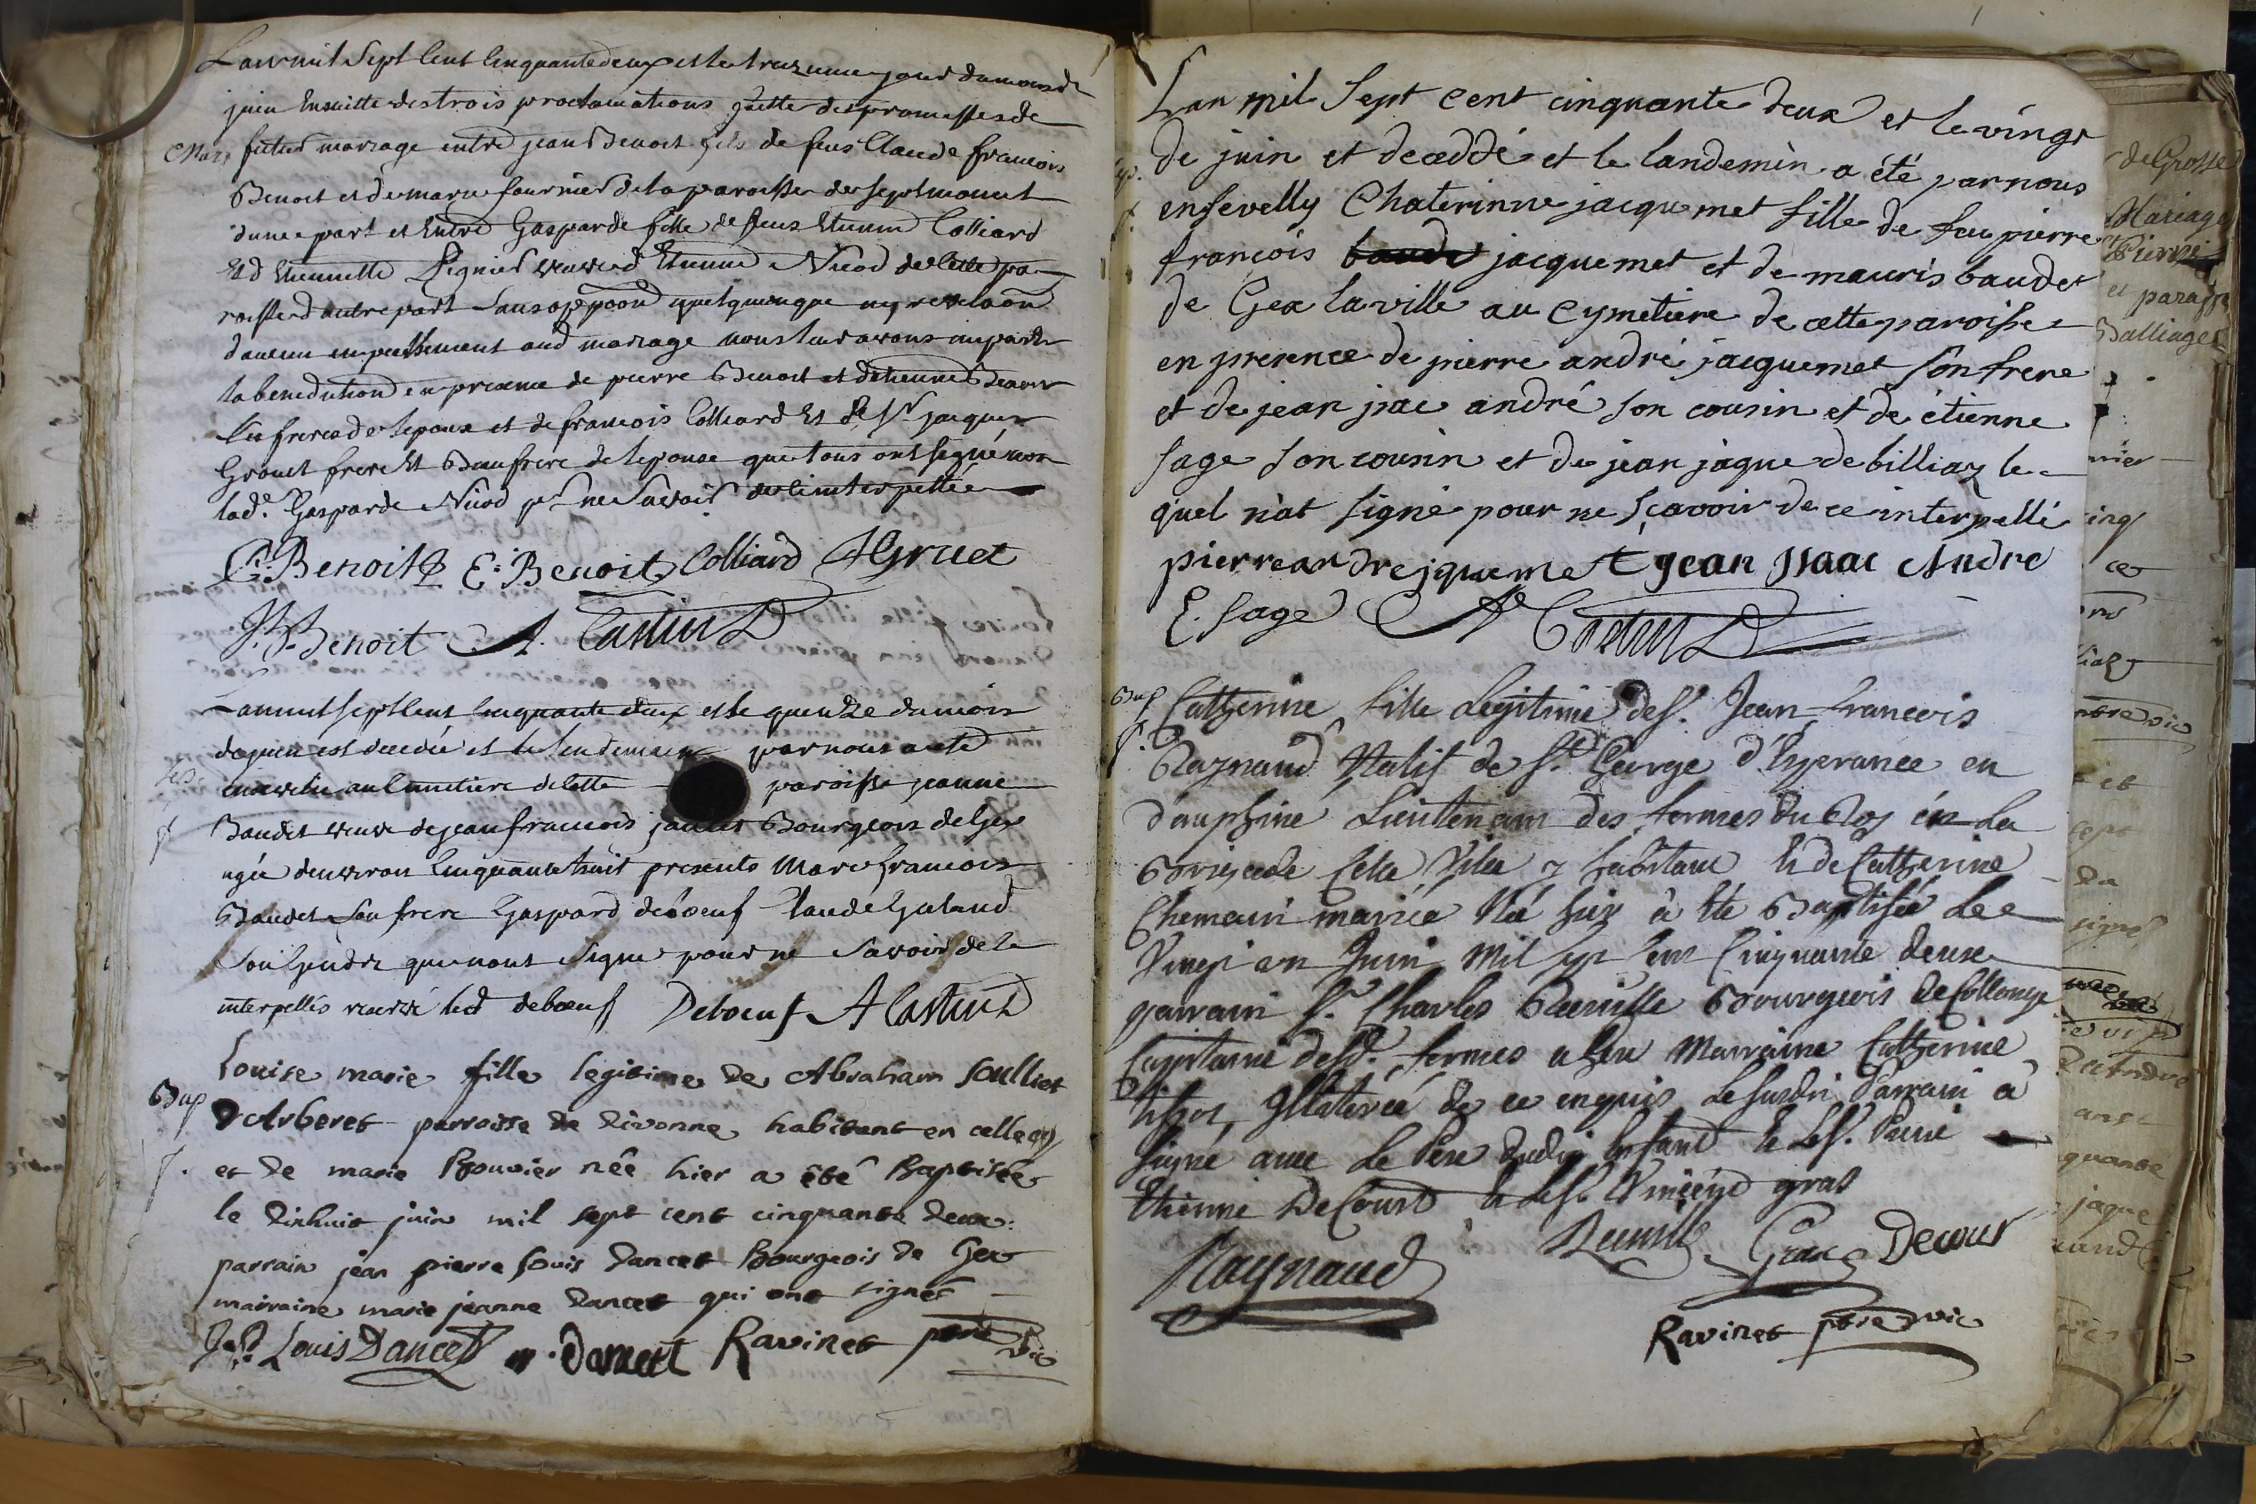 Lan mil Sept Cent Cinquante deux et le treizieme jour du mois de
juin Ensuitte des trois proclamations faitte des promesses de
Mar. futur mariage entre jean Benoit fils de feus Claude francois
Benoit et de marie fournier de la paroisse de septmoncel
dune part et Entre Gasparde fille de feus Etienne Colliard
Et d'Etiennette veuve d'Etienne Nicod de cette pa
roisse d'autre part sans oppoon quelquonque ny revelaon
daucun empechement aud mariage nous leur avons imparti
la benediction en presence de pierre Benoit et d'etienne Benoit
ses freres de lepoux et de francois Colliard Et de Sr jacques
Gruet frere Et Beaufrere de lepouse que tous ont signé non
lad.e Gasparde Nicod pr ne Savoir de ce interpellée
C. Benoit E. Benoit Colliard Gruet
J. Benoit A. Castin
Lan mil sept Cent Cinquante deux et le quinze du mois
de juin est decedée et le lendemain par nous a eté
ensevelie au Cimetiere de cette paroisse jeanne
Baudet veuve de jean francois Bourgeois de Gex
agée denviron Cinquante huit presents Marc francois
Baudet son frere Gaspard deboeuf Claude
son Gendre que nont signé pour ne savoir de ce
interpellés reservé led deboeuf Deboeuf A Castin
Bap Louise marie fille legitime de Abraham Soulliet
D'Arberet parroisse de Divonne habitant en celle cy
f. et de marie Bouvier née hier a été Baptisée
le dixhuit juin mil sept cent cinquante deux:
parrain jean pierre Louis Dancet Bourgeois de Gex
marraine marie jeanne Dancet qui ont signés
J. P. Louis Dancet m. Dancet Ravinet ptre vic
Lan mil Sept Cent cinquante deux et le vingt
de juin et deceddé et le landemin a été par nous
ensevelly Chaterinne jacquemet fille de feu pierre
françois jacquemet et de mauris baudet
de Gex la ville au Cymetiere de cette paroisse
en presence de pierre andré jacquemet son frere
et de jean jsac andré son cousin et de étienne
sage son cousin et de jean jaque de billiaz le
quel nat signé pour ne scavoir de ce interpellé
pierre andre jquemet jean jsaac Andre
E. sage A Castin
Bap Catherine fille Legitime de Sr. Jean-francois
f. Raynaud Natif de St. George d'Esperance en
dauphiné Lieutenant des fermes du Roy en La
Brigade de Cette Ville y habitant Et de Catherine
Chemain mariée Née hier à Eté Baptisée Le
Vingt un Juin Mil sept Cent Cinquante deux
parrain Sr. Charles Bourgeois de Collonge
Capitaine desd. fermes a Gex Marraine Catherine
tissot Illiterée de ce enquis Le susdit Parrain à
signé avec Le Pere dudit Enfant Et Le Sr. Pierre
Etienne Decourt Et Le Sr. Vincend gras
Raynaud Gras Decour
Ravinet ptre vic
de Grosse
Mariage
Pierre
et paraisse
Balliage